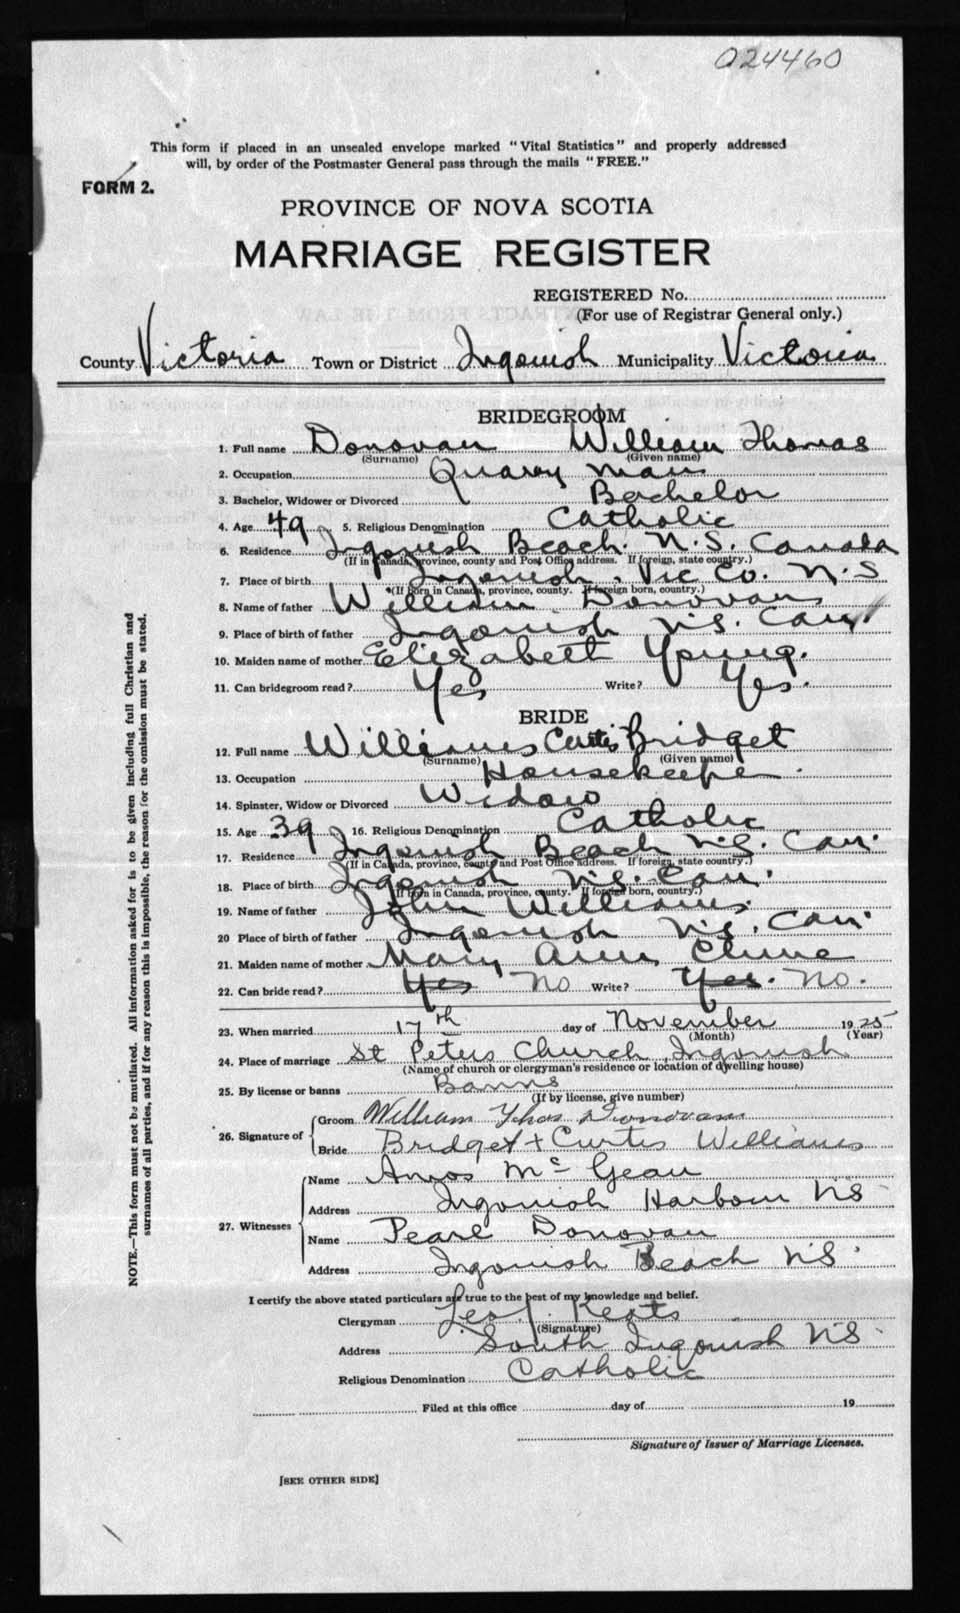 024460
This form if placed in an unsealed envelope marked "Vital Statistics" and properly addressed
will, by order of the Postmaster General pass through the mails "FREE."
FORM 2.
PROVINCE OF NOVA SCOTIA
MARRIAGE REGISTER
REGISTERED No.
(For use of Registrar General only.)
County Victoria Town or District Ingonish Municipality Victoria
BRIDEGROOM
1. Full name Donovan William Thomas
(Surname) (Given name)
2. Occupation Quarry man
3. Bachelor, Widower or Divorced Bachelor
4. Age 49 5. Religious Denomination Catholic
6. Residence Ingonish Beach. N.S. Canada
(If in Canada, province, county and Post Office address. If foreign, state country.)
7. Place of birth Ingonish, Vic Co. N.S
(If born in Canada, province, county. If foreign born, country.)
8. Name of father William Donovan
9. Place of birth of father Ingonish N.S. Can.
10. Maiden name of mother Elizabett Young.
11. Can bridegroom read? Yes Write? Yes.
BRIDE
12. Full name Williams Curtis Bridget
(Surname) (Given name)
13. Occupation Housekeeper
14. Spinster, Widow or Divorced Widow
15. Age 39 16. Religious Denomination Catholic
17. Residence Ingonish Beach N.S. Can.
(If in Canada, province, county and Post Office address. If foreign, state country.)
18. Place of birth Ingonish N.S. Can.
(If born in Canada, province, county. If foreign born, country.)
19. Name of father John Williams
20 Place of birth of father Ingonish N.S. Can.
21. Maiden name of mother Mary Ann
22. Can bride read? Yes No Write? Yes. No.
23. When married 17th day of November 1925
(Month) (Year)
24. Place of marriage St Peters Church, Ingonish
(Name of church or clergyman's residence or location of dwelling house)
25. By license or banns Banns
(If by license, give number)
26. Signature of Groom William Thos Donovan
Bride Bridget + Curtis Williams
27. Witnesses Name Amos McGean
Address Ingonish Harbour N.S
Name Pearl Donovan
Address Ingonish Beach N.S.
I certify the above stated particulars are true to the best of my knowledge and belief.
Clergyman Leo J. Keats
(Signature)
Address South Ingonish N.S.
Religious Denomination Catholic
Filed at this office day of 19
Signature of Issuer of Marriage Licenses.
[SEE OTHER SIDE]
NOTE.—This form must not be mutilated. All information asked for is to be given including full Christian and
surnames of all parties, and if for any reason this is impossible, the reason for the omission must be stated.